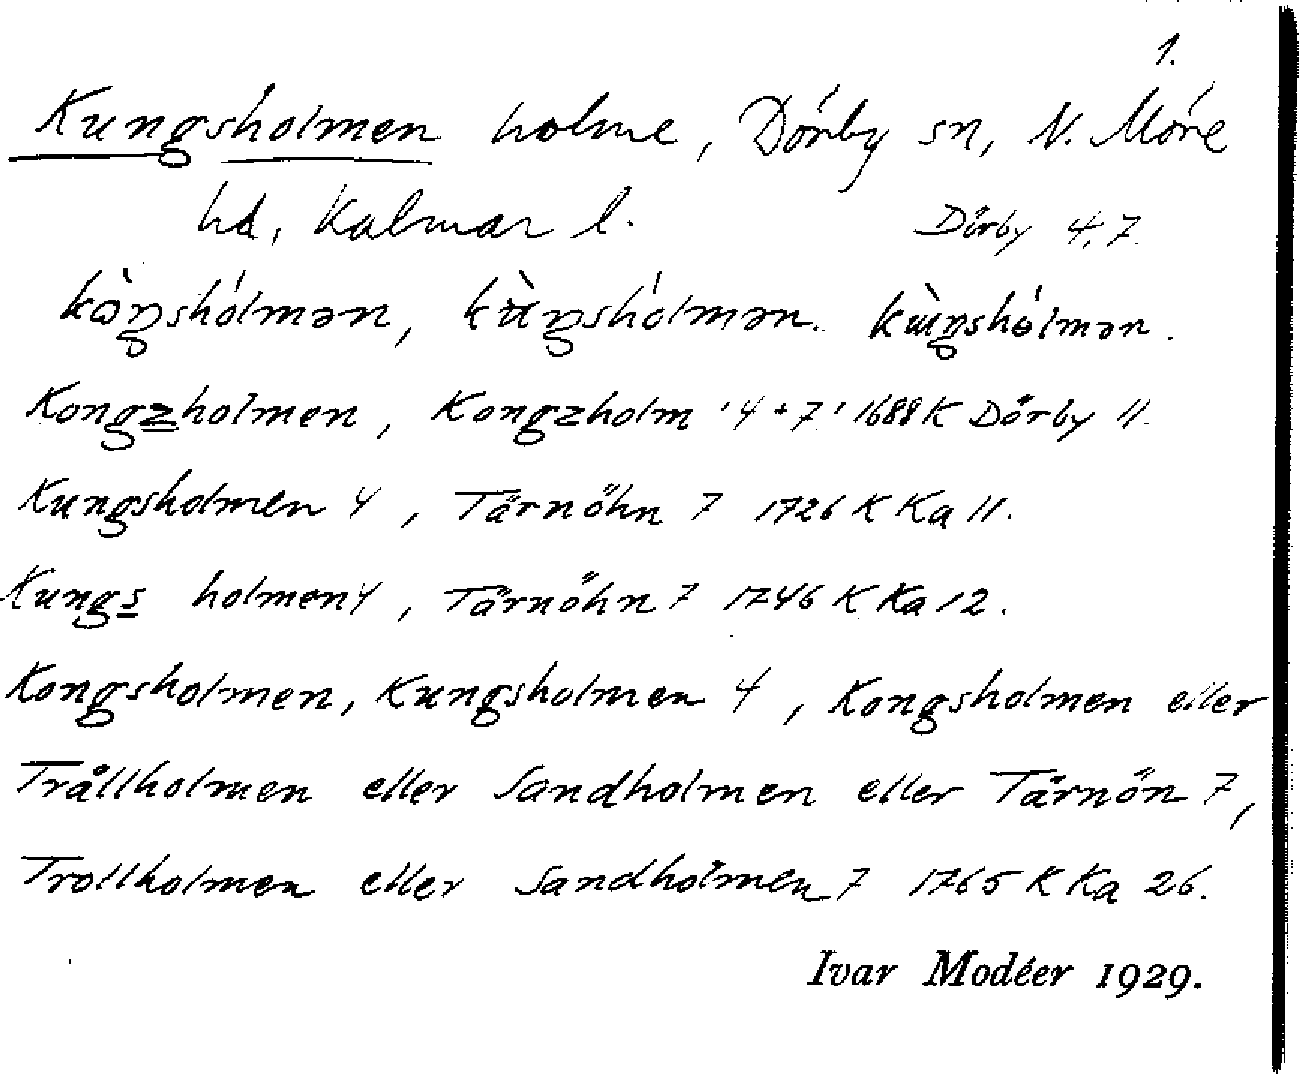 1.
Kungsholmen holme, Dörby sn, N. Möre
hd, Kalmar l. Dörby 4, 7.
kòŋshólmən, kùŋshólmən. kùŋshólmən.
Kongzholmen, Kongzholm '4+7' 1688 K Dörby 11.
Kungsholmen 4, Tärnöhn 7 1726 K Ka 11.
Kungs holmen 4, Tärnöhn 7 1746 K Ka 12.
Kongsholmen, Kungsholmen 4, Kongsholmen eller
Trållholmen eller Sandholmen eller Tärnön 7,
Trollholmen eller Sandholmen 7 1765 K Ka 26.
Ivar Modéer 1929.